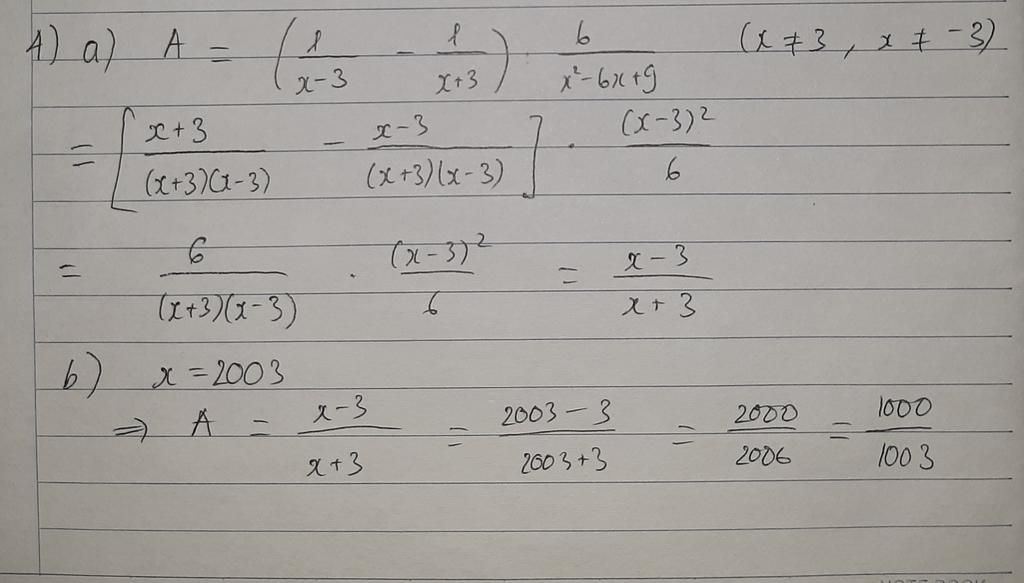 1) a) A = (1/(x-3) - 1/(x+3)) . 6/(x²-6x+9) (x ≠ 3, x ≠ -3)
= [(x+3)/((x+3)(x-3)) - (x-3)/((x+3)(x-3))] . (x-3)²/6
= 6/((x+3)(x-3)) . (x-3)²/6 = (x-3)/(x+3)
b) x = 2003
⇒ A = (x-3)/(x+3) = (2003-3)/(2003+3) = 2000/2006 = 1000/1003